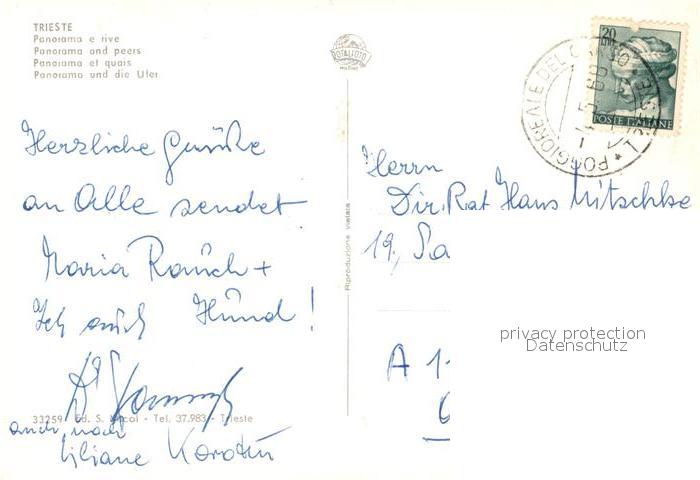 TRIESTE
Panorama e rive
Panorama and peers
Panorama et quais
Panorama und die Ufer
ROTALFOTO
MILANO
Herzliche Grüße
an Alle sendet
Maria Rausch +
Ich auch Hund!
auch noch
Liliane
33259 Ed. S. - Tel. 37.983 - Trieste
Riproduzione vietata
20
POSTE ITALIANE
POGGIOREALE DEL CARSO
TRIESTE
Herrn
Dir. Rat Hans Nitschke
19, Sa
A 1-
privacy protection
Datenschutz